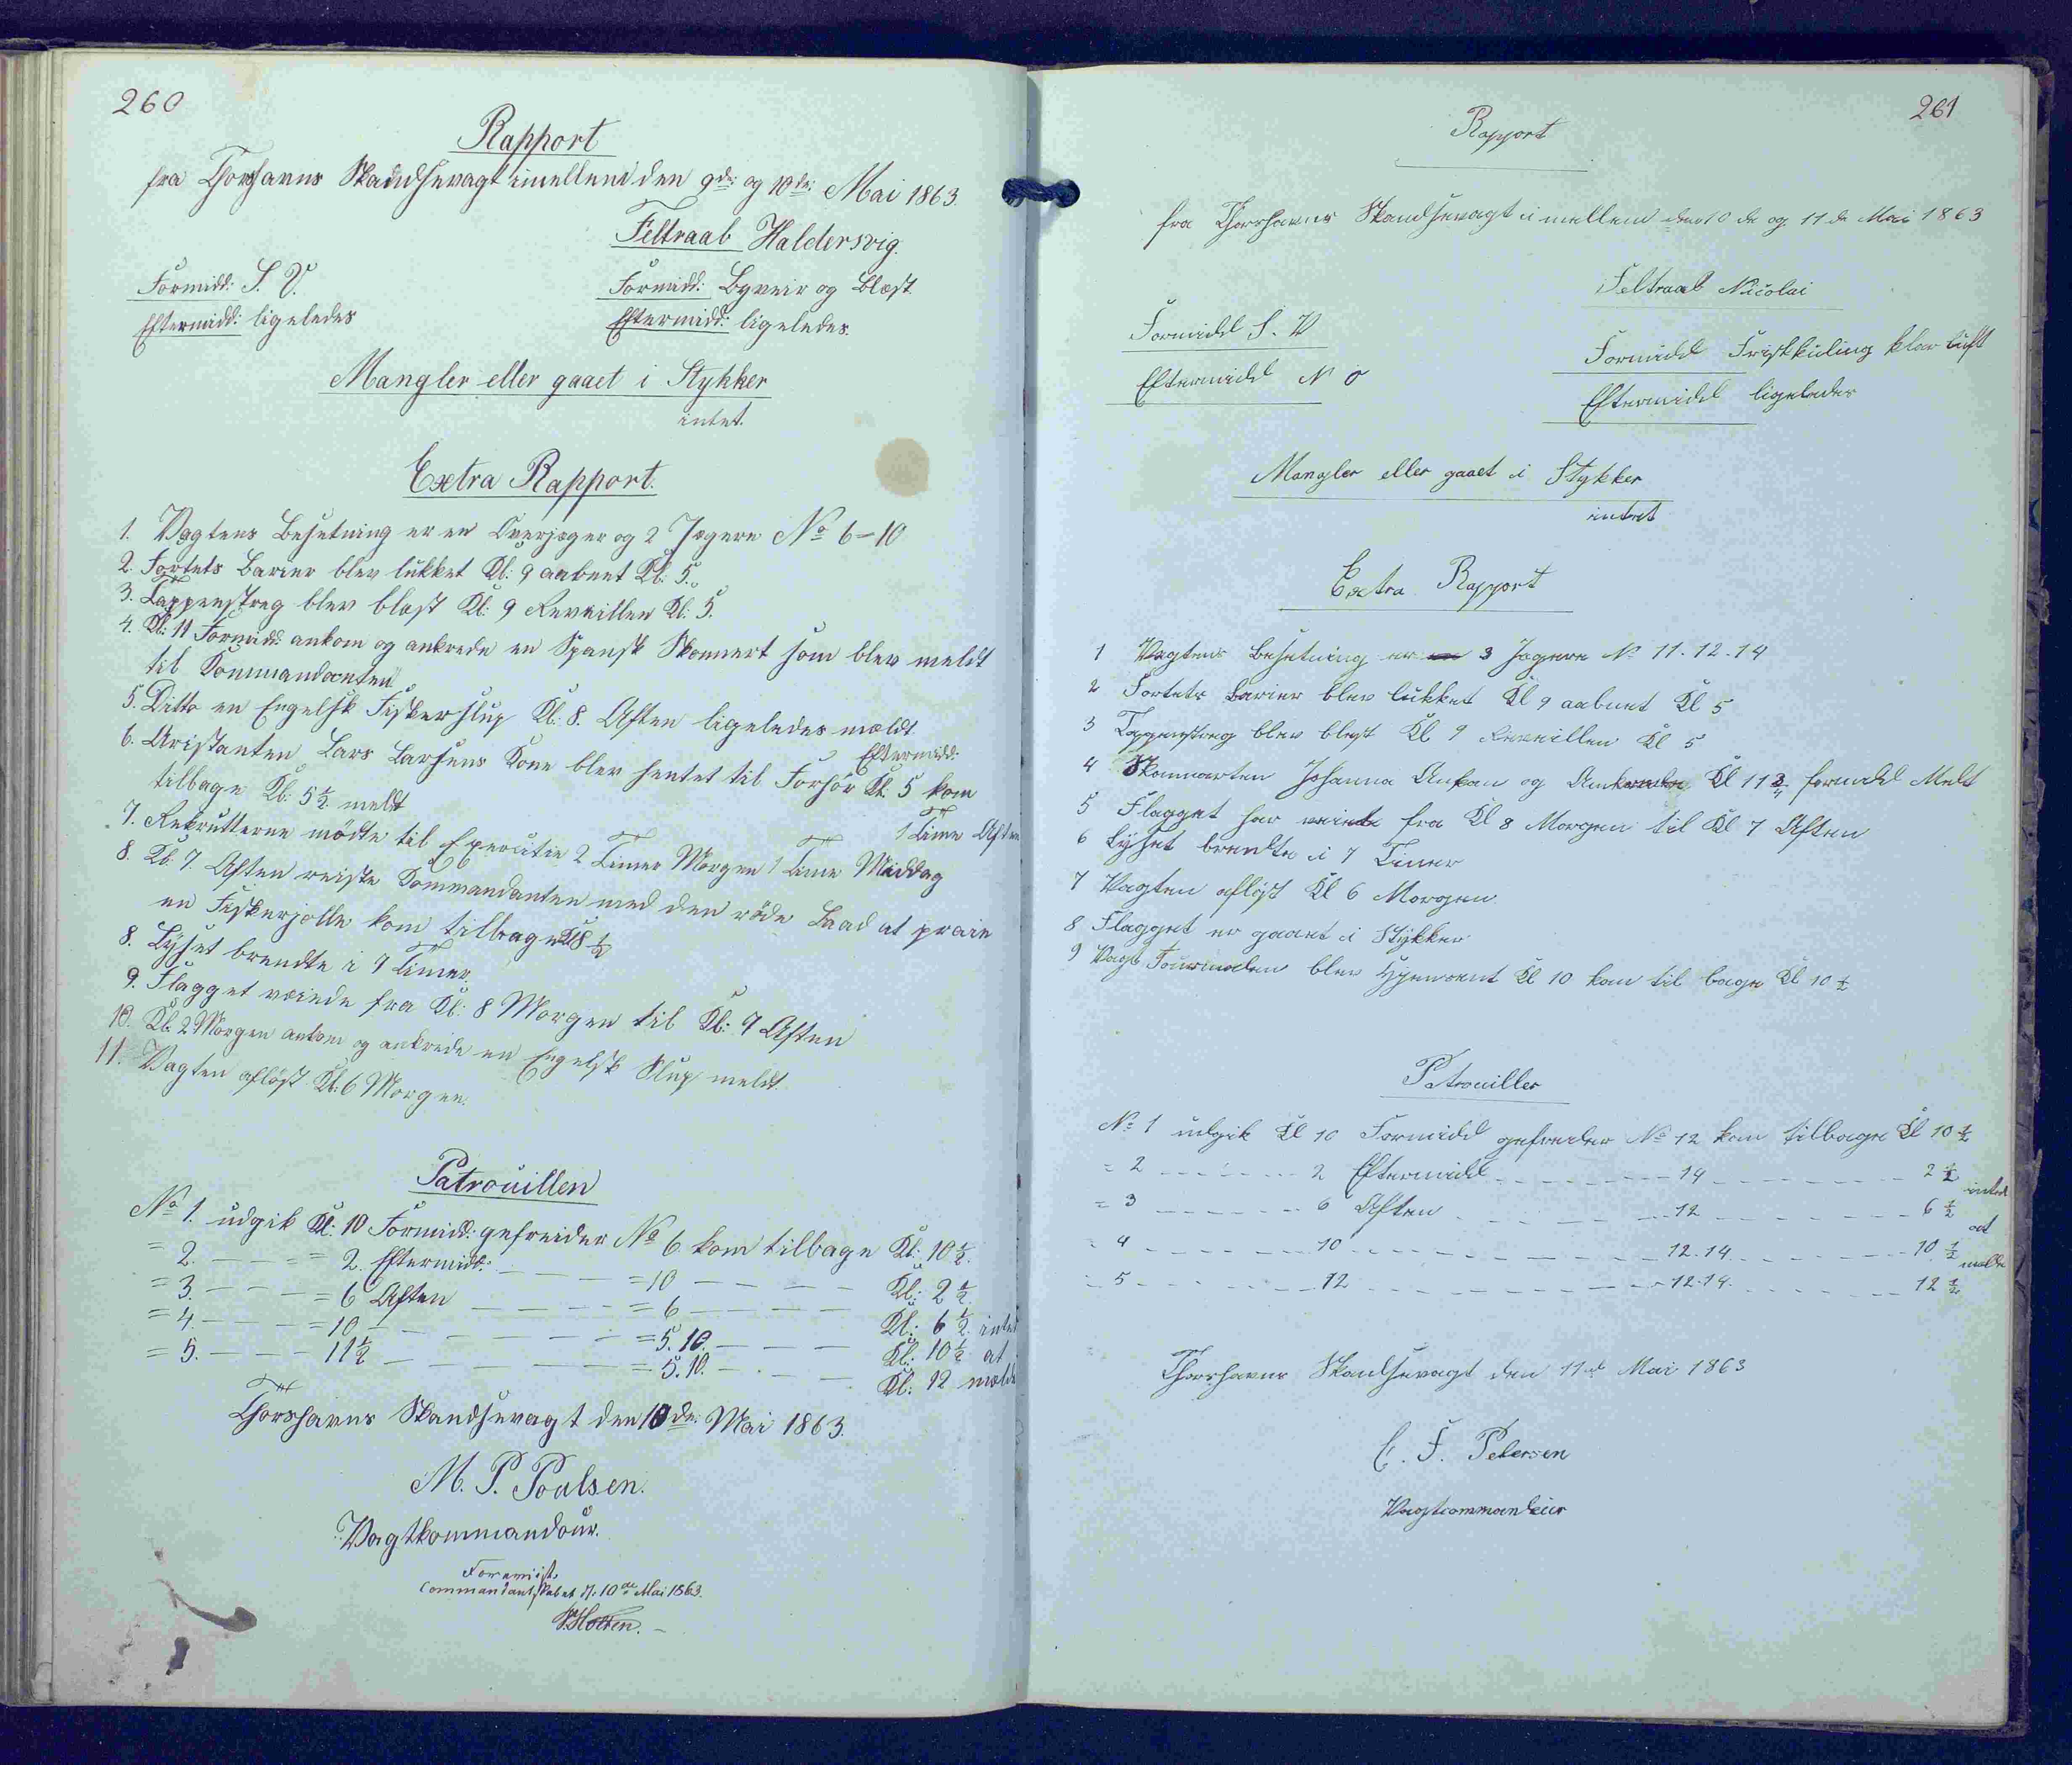 260
Rapport
fra Thorshavns Skandsevagt imellem den 9de og 10de Mai 1863.
Feltraab Haldersvig.
Formidd: S. V.
Formidd: Byveir og Blæst
Eftermidd: ligeledes
Eftermidd: ligeledes.
Mangler eller gaaet i Stykker
intet.
Extra Rapport.
1. Vagtens Besetning er en Overjæger og 2 Jægere No 6=10
2. Fortets Barier blev lukket Kl: 9 aabnet Kl: 5.
3. Tappenstreg blev blæst Kl: 9 Reveillen Kl: 5.
4. Kl: 11 Formidd: ankom og ankrede en Spansk Skonnert som blev meldt
til Kommandanten
5. Ditto en Engelsk Fiskerslup Kl: 8. Aften ligeledes mældt
6. Aristanten Lars Larsens Kone blev hentet til Forhör Kl. 5 Eftermidd: kom
tilbage Kl: 5 1/2 meldt
7. Rekrutterne mödte til Exercitie 2 Timer Morgen 1 Time Middag 1 Time Aften
8. Kl. 7. Aften reiste Kommandanten med den röde Baad at praie
en Fiskerjolle kom tilbage Kl 8 1/2
8. Lyset brendte i 7 Timer
9. Flagget veiede fra Kl: 8 Morgen til Kl: 7 Aften
10. Kl. 2 Morgen ankom og ankrede en Engelsk Slup meldt.
11. Vagten aflöst Kl: 6 Morgen.
Patrouillen
No 1. udgik Kl: 10 Formidd: gefreider No 6 kom tilbage Kl: 10 1/2.
= 2. — — = 2. Eftermidd: — — — =10 — — — Kl: 2 1/2
= 3. — — = 6 Aften — — — = 6 — — — Kl: 6 1/2 intet
= 4. — — =10 — — — = 5. 10. — — — Kl: 10 1/2 at
= 5. — — 11 1/2 — — — = 5. 10. — — — Kl: 12 melde
Thorshavns Skandsevagt den 10de Mai 1863.
M. P. Poulsen.
Vagtkommandour.
Foreviist.
Commandantskabet d. 10de Mai 1863.
HHolten.
261
Rapport
fra Thorshavns Skandsevagt imellem den 10 de og 11 de Mai 1863
Feltraab Nicolai
Formidd S. V
Formidd Friskkuling klar luft
Eftermidd N O
Eftermidd ligeledes
Mangler eller gaaet i Stykker
intet
Extra Rapport
1 Vagtens Besetning er 3 Jægere No 11. 12. 14
2 Fortets Barier blev lukket Kl 9 aabnet Kl 5
3 Tappenstreg blev blest Kl 9 Reveillen Kl 5
4 Skonnarten Johanna Ankom og Ankrede Kl 11 3/4 formidd Melt
5 Flagget har veiede fra Kl 8 Morgen til Kl 7 Aften
6 Lyset brendte i 7 Timer
7 Vagten aflöst Kl 6 Morgen
8 Flagget er gaaet i Stykker
9 Vagt Journalen blev Kl 10 kom til bage Kl 10 1/2
Patrouiller
No 1 udgik Kl 10 Formidd gefreider No 12 kom tilbage Kl 10 1/2
= 2 — — — 2 Eftermidd — — — 14 — — — 2 1/2 intet
= 3 — — — 6 Aften — — — 12 — — — 6 1/2 at
= 4 — — — 10 — — — 12. 14. — — — 10 1/2 melde
= 5 — — — 12 — — — 12. 14. — — — 12 1/2
Thorshavns Skandsevagt den 11de Mai 1863
C. F. Petersen
Vagtcommandeur